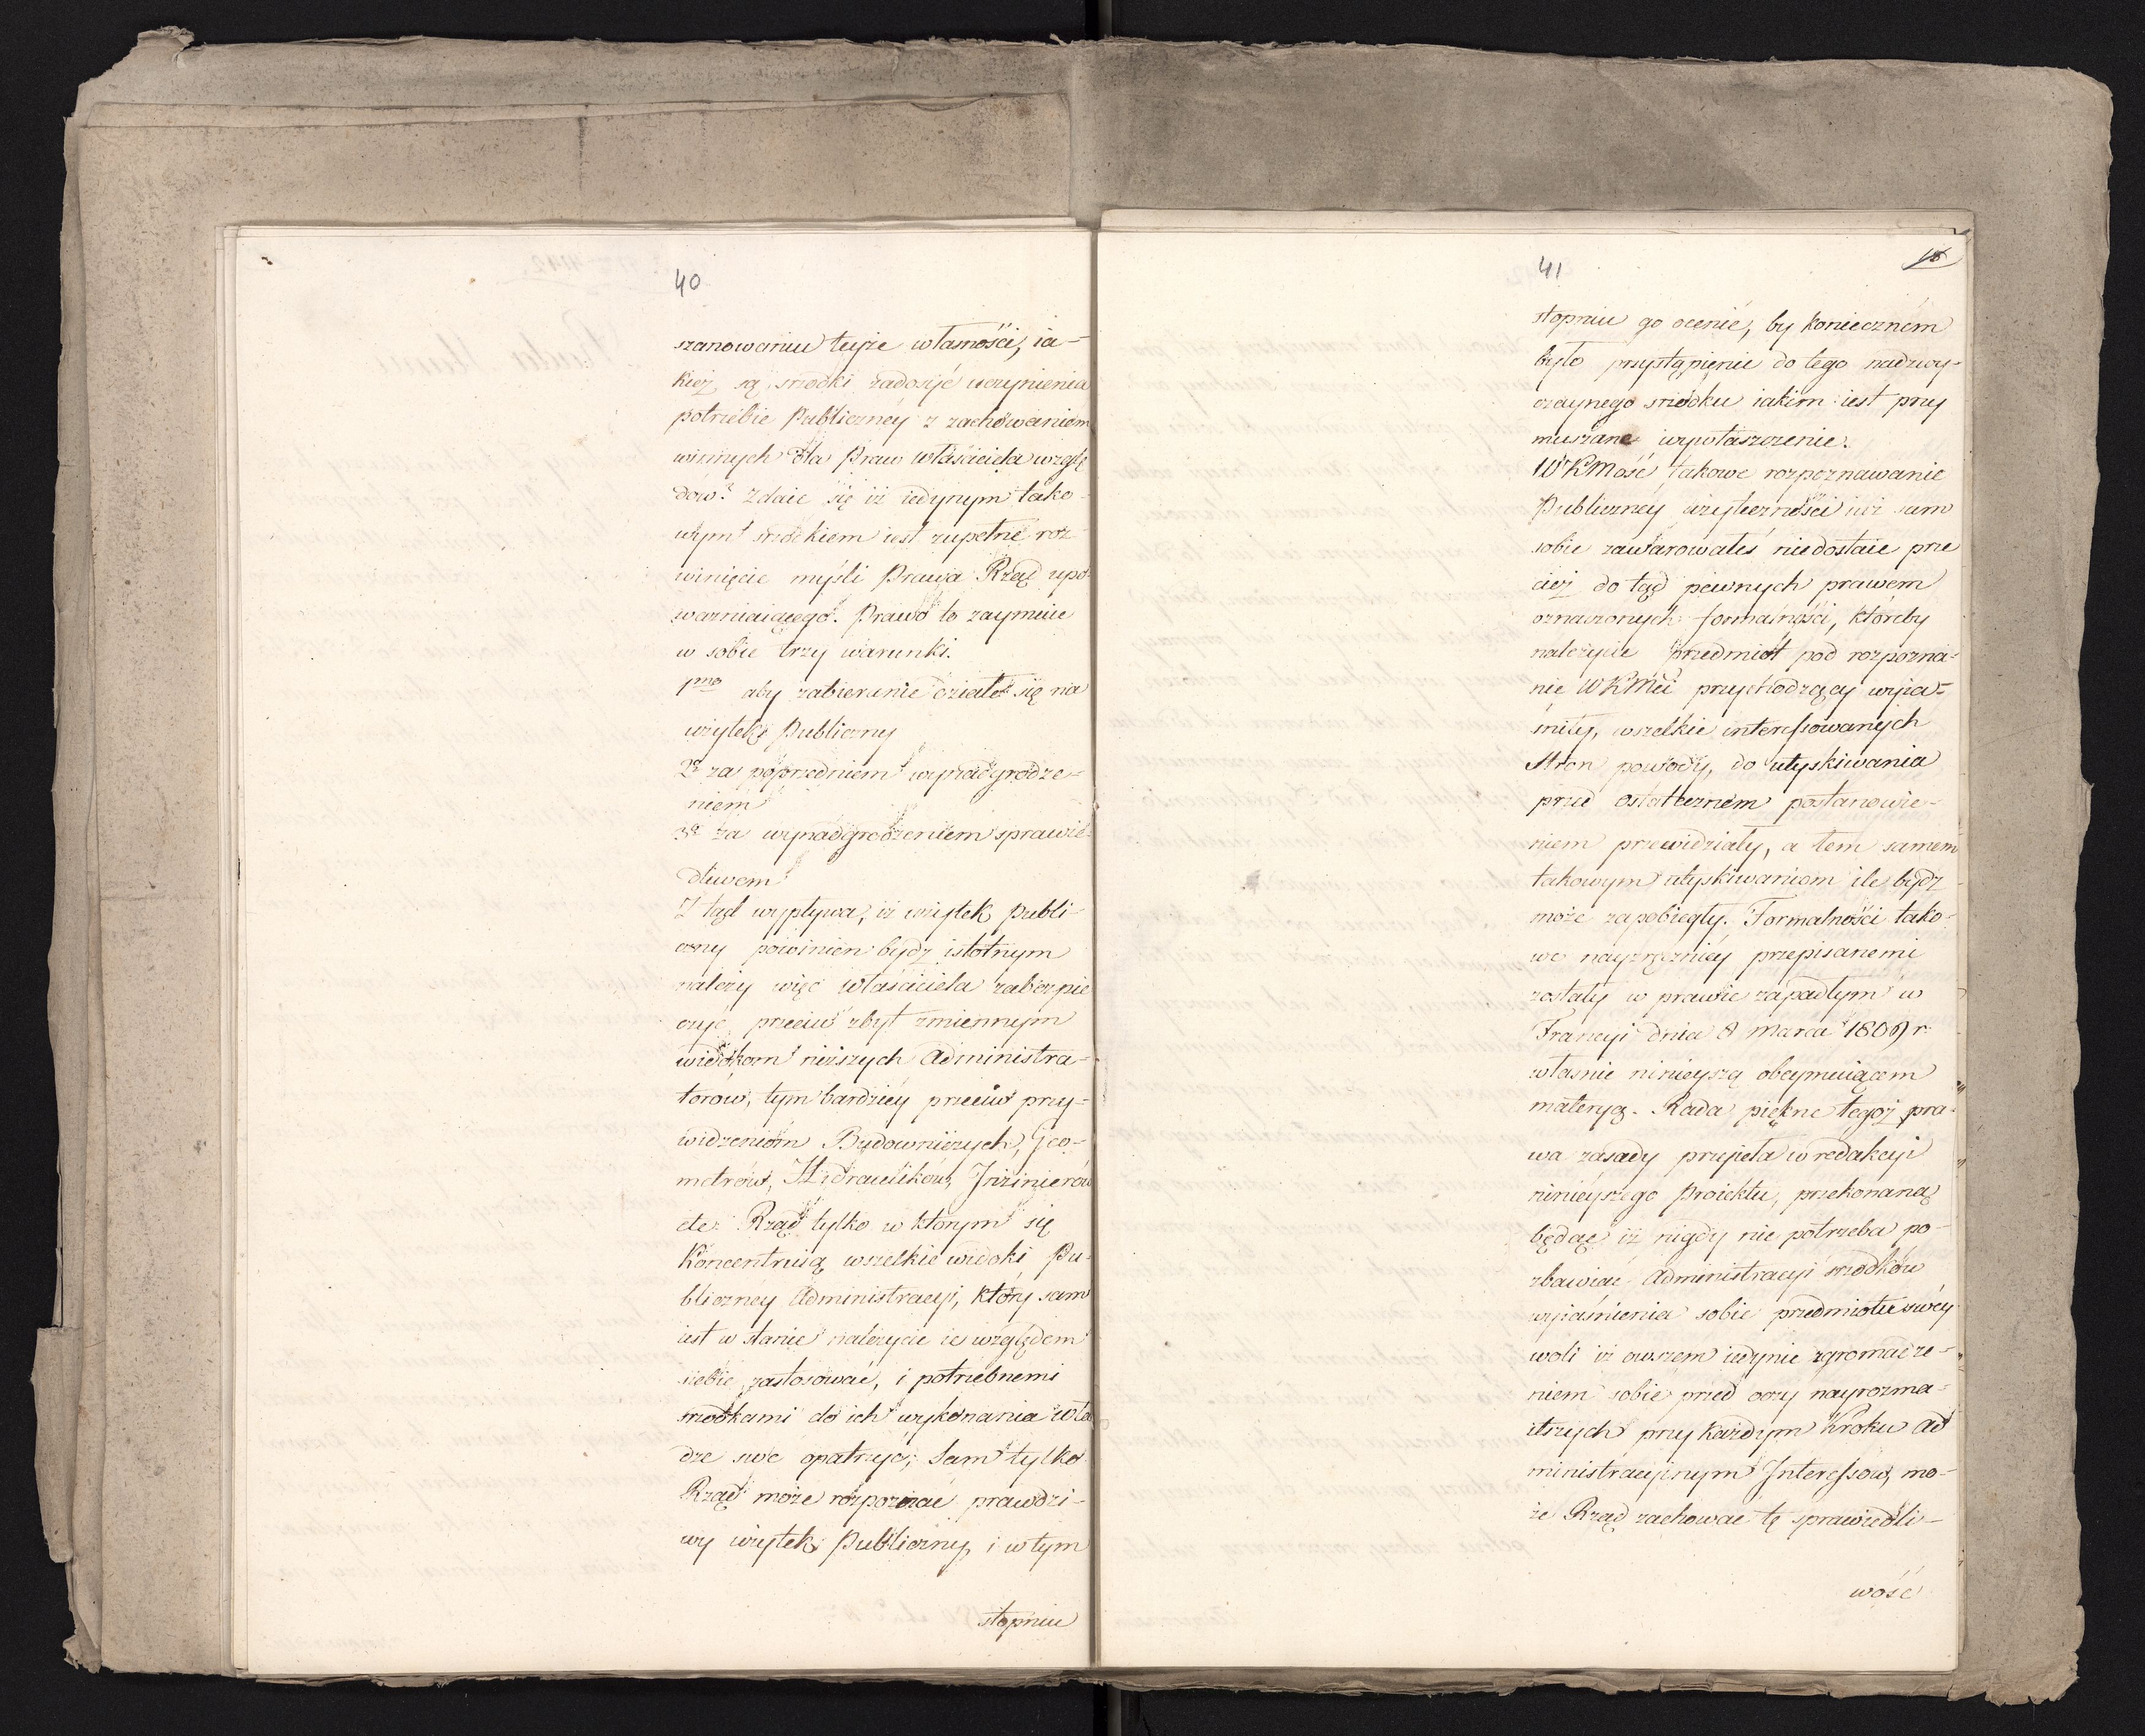 40
szanowaniu teyże własności, ia-
kież są srzodki zadosyć uczynienia
potrzebie Publiczney z zachowaniem
winnych dla Praw właściciela wzglę
dow? Zdaie się iż iedynym tako-
wym srzodkiem iest zupełne roz-
winięcie myśli Prawa Rząd upo-
ważniaiącego. Prawo to zaymuie
w sobie trzy warunki.
1mo aby zabieranie działo się na
użytek Publiczny
2o za poprzedniem wynadgrodze-
niem
3o za wynadgrodzeniem sprawie-
dliwem
Z tąd wypływa, iż użytek publi-
czny powinien bydź istotnym
należy więc właściciela zabezpie
czyć przeciw zbyt zmiennym
widokom niższych Administra-
torów, tym bardziéy przeciw przy-
widzeniom Budowniczych, Geo-
metrów, Hidraulików, Inżinierów
etc. Rząd tylko w którym się
koncentruią wszelkie widoki Pu-
bliczney Administracyi, który sam
iest w stanie należycie ie względem
siebie zastosować, i potrzebnemi
srzodkami do ich wykonania wła
dze swe opatrzyć; Sam tylko
Rząd może rozpoznać prawdzi-
wy użytek Publiczny, i w tym
stopniu
41
stopniu go ocenić, by konieczném
było przystąpienie do tego nadzwy-
czaynego srzodku iakim iest przy
muszane wywłaszczenie.
WKMość takowe rozpoznawanie
Publiczney użyteczności iuż sam
sobie zawarowałeś niedostaie prze
cież do tąd pewnych prawem
oznaczonych formalności, któreby
należycie przedmiot pod rozpozna-
nie WKMci przychodzący wyia-
śniły, wszelkie interessowanych
Stron powody, do utyskiwania
przed ostatecznem postanowie-
niem przewidziały, a tem samem
takowym utyskiwaniom ile bydź
może zapobiegły. Formalności tako-
we nayzręczniéy przepisanemi
zostały w prawie zapadłym w
Francyi dnia 8 marca 1809 r.
własnie ninieyszą obeymuiącem
materyą. Rada piękne tegoż pra-
wa zasady przyjęła w redakcyi
ninieyszego Proiektu, przekonaną
będąc iż nigdy nie potrzeba po-
zbawiać Administracyi srzodków
wyiaśnienia sobie przedmiotu swéy
woli iż owszem iedynie zgromadze-
niem sobie przed oczy nayrozma-
itszych przy każdym kroku Ad
ministracyinym Interessow, mo-
że Rząd zachować tę sprawiedli-
wość